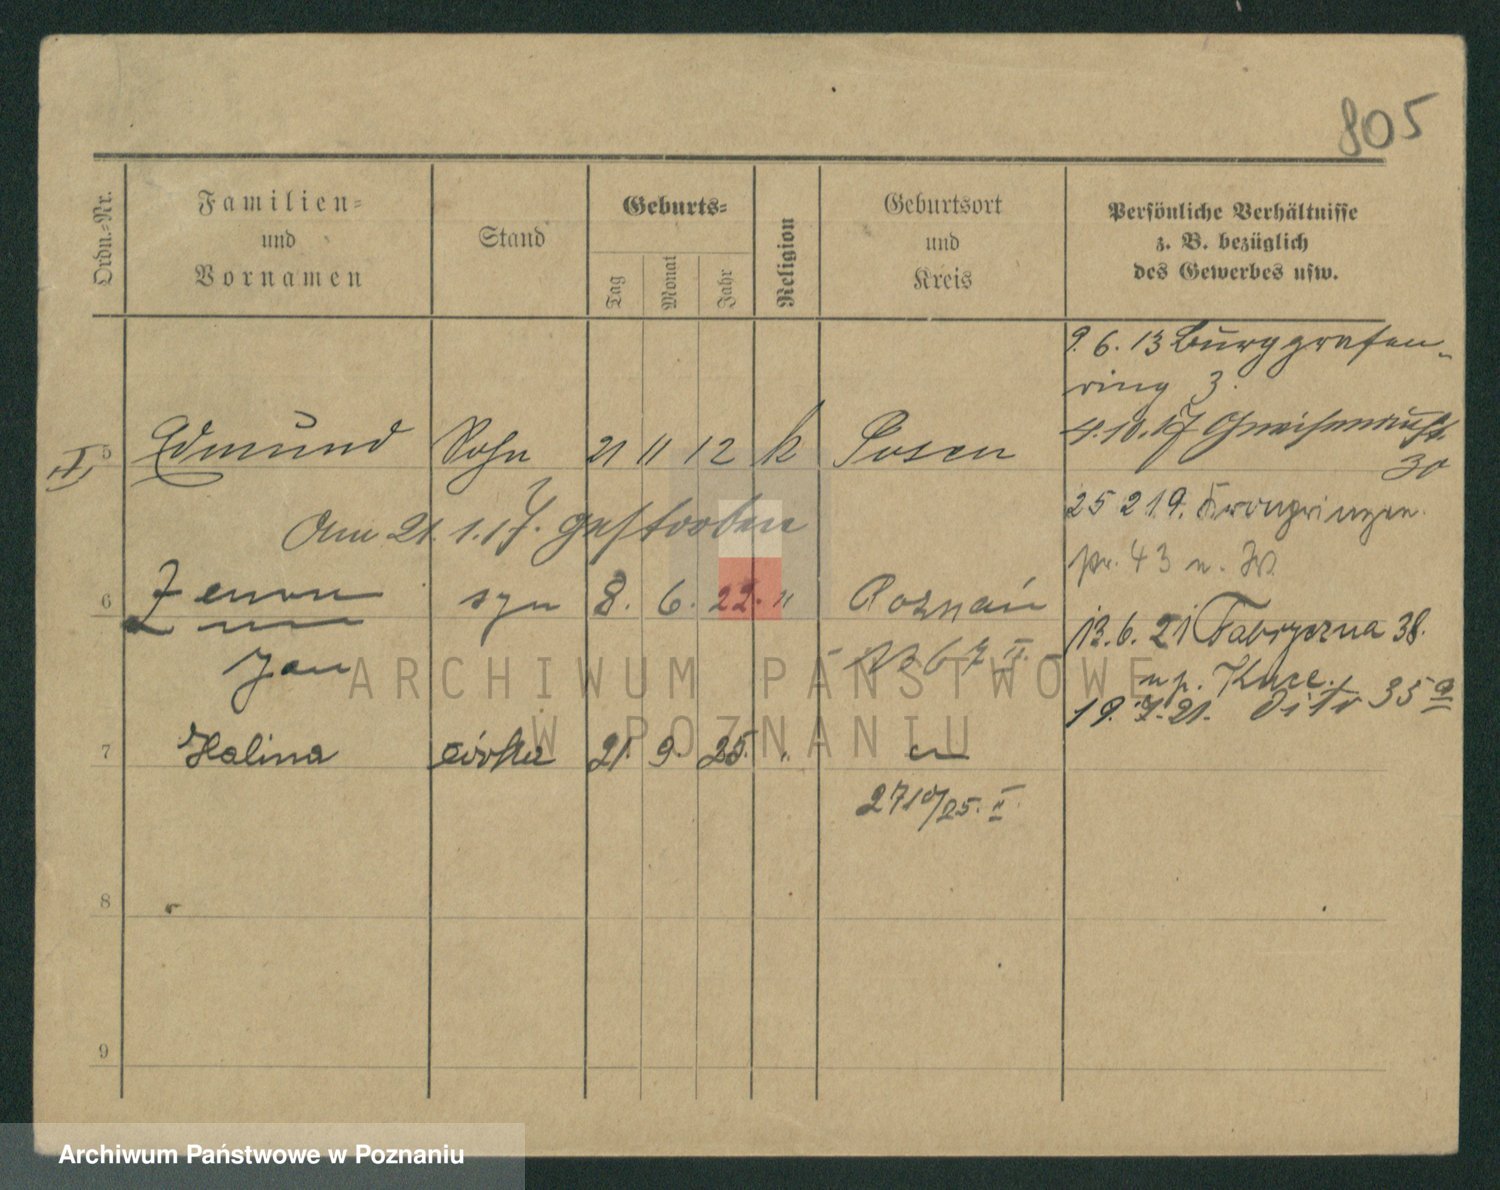 805
Ordn.-Nr.
Familien-
und
Vornamen
Stand
Geburts-
Tag
Monat
Jahr
Religion
Geburtsort
und
Kreis
Persönliche Verhältnisse
z. B. bezüglich
des Gewerbes usw.
9. 6. 13 Burggrafen-
ring 3.
II 5 Edmund Sohn 21 11 12 k Posen
4.10.17 Gneisenaustr.
30
Am 21.1.17. gestorben
25 2 19. Kronprinzen
pr. 43 n. W.
6 Zenon syn 8. 6. 22. " Poznań
Jan
13.6.21 Fabryczna 38.
19.7.21. dito 35a
7 Halina córka 21. 9. 25. "
2710/25. II.
8
9
ARCHIWUM PAŃSTWOWE
W POZNANIU
Archiwum Państwowe w Poznaniu